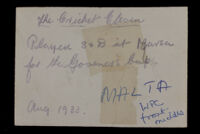 the Cricket Eleven
Played 3rd at Marsa
for the Governor's Cup
MALTA
Aug 1933.
WPC
front
middle